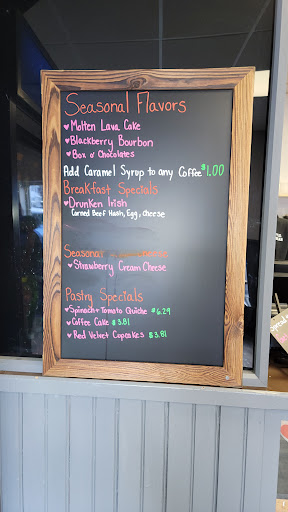 Seasonal Flavors
♥ Molten Lava Cake
♥ Blackberry Bourbon
♥ Box o' Chocolates
Add Caramel Syrup to any Coffee $1.00
Breakfast Specials
♥ Drunken Irish
Corned Beef Hash, Egg, Cheese
Seasonal
♥ Strawberry Cream Cheese
Pastry Specials
♥ Spinach + Tomato Quiche $6.29
♥ Coffee Cake $3.81
♥ Red Velvet Cupcakes $3.81